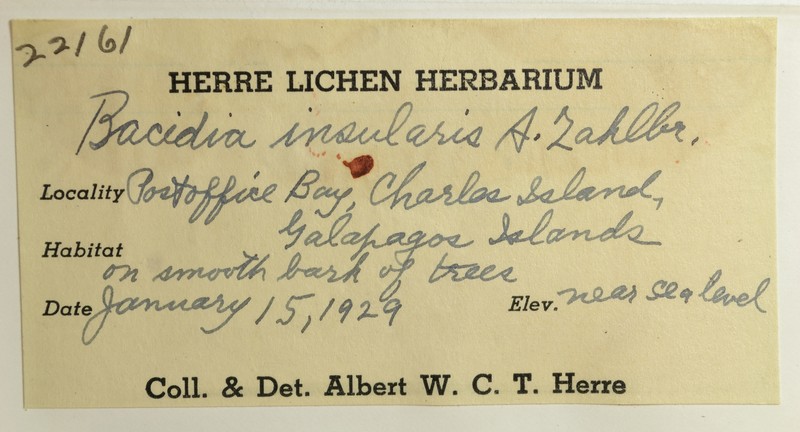 22161
HERRE LICHEN HERBARIUM
Bacidia insularis A. Zahlbr.
Locality Postoffice Bay, Charles Island,
Galapagos Islands
Habitat
on smooth bark of trees
Date January 15, 1929 Elev. near sea level
Coll. & Det. Albert W. C. T. Herre